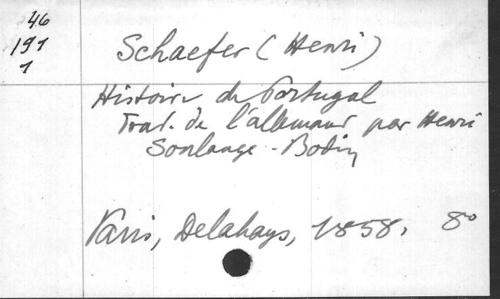 46
191
1
Schaefer (Henri)
Histoire de Portugal
Trad. de l'allemand par Henri
Soulange-Bodin
Paris, Delahays, 1858. 8°